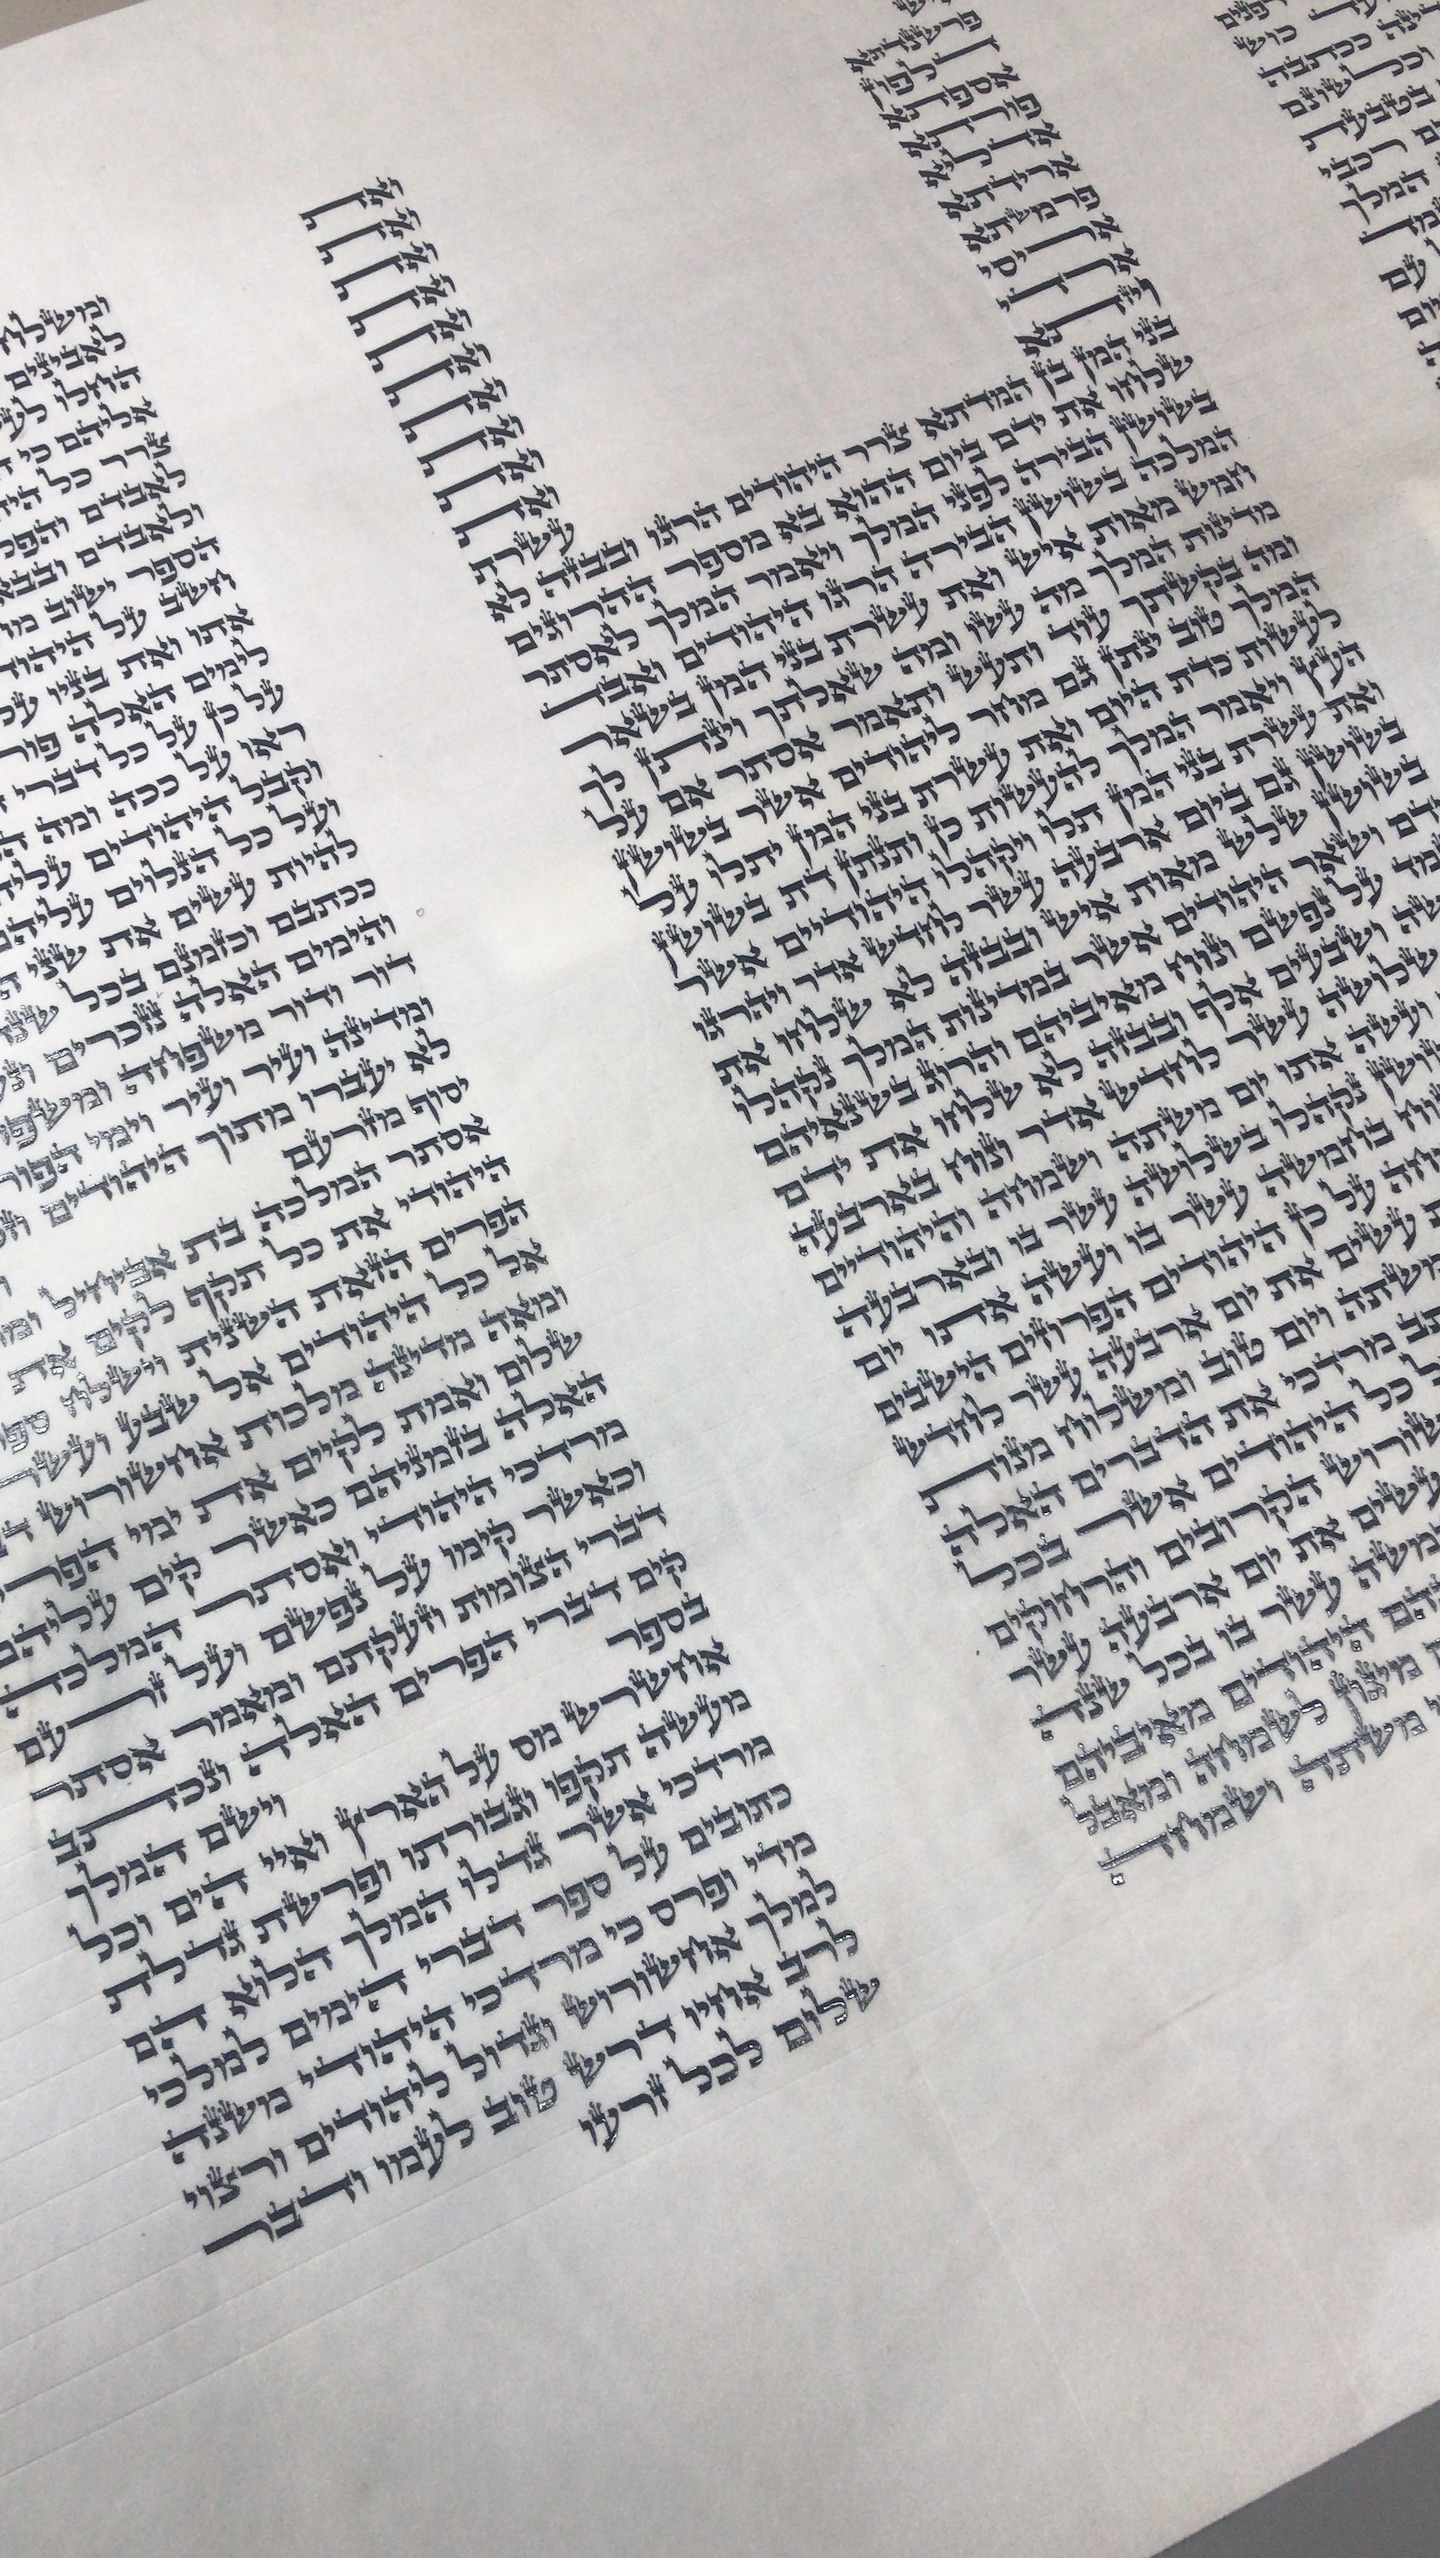 כוש
ככתבה
וככלשונם
בטבעת
רכבי
המלך
עם
פרשנדתא ואת
דלפון ואת
אספתא ואת
פורתא ואת
אדליא ואת
ארידתא ואת
פרמשתא ואת
אריסי ואת
ארדי ואת
ויזתא עשרת
בני המן בן המדתא צרר היהודים הרגו ובבזה לא
שלחו את ידם ביום ההוא בא מספר ההרוגים
בשושן הבירה לפני המלך ויאמר המלך לאסתר
המלכה בשושן הבירה הרגו היהודים ואבד
חמש מאות איש ואת עשרת בני המן בשאר
מדינות המלך מה עשו ומה שאלתך וינתן לך
ומה בקשתך עוד ותעש ותאמר אסתר אם על
המלך טוב ינתן גם מחר ליהודים אשר בשושן
לעשות כדת היום ואת עשרת בני המן יתלו על
העץ ויאמר המלך להעשות כן ותנתן דת בשושן
ואת עשרת בני המן תלו ויקהלו היהודיים אשר
בשושן גם ביום ארבעה עשר לחדש אדר ויהרגו
בשושן שלש מאות איש ובבזה לא שלחו את
ידם ושאר היהודים אשר במדינות המלך נקהלו
על נפשם ונוח מאיביהם והרוג בשנאיהם
ושבעים אלף ובבזה לא שלחו את ידם
שלושה עשר לחדש אדר ונוח בארבעה
ועשה אתו יום משתה ושמחה והיהודיים
נקהלו בשלושה עשר בו ובארבעה
בחמשה עשר בו ועשה אתו יום
על כן היהודים הפרוזים הישבים
עשים את יום ארבעה עשר לחדש
משתה ויום טוב ומשלוח מנות
מרדכי את הדברים האלה
כל היהודים אשר בכל
הקרובים והרחוקים
עשים את יום ארבעה עשר
עשר בו בכל שנה
היהודים מאיביהם
מיגון לשמחה ומאבל
משתה ושמחה
ומשלוח
לאבינים
הוחלו
אליהם כי
צרר כל
לאבדם והפל
ולאבדם ובבא
הספר ישוב
חשב על
אתו ואת בניו
לימים האלה פור
על כן על כל דברי
ראו על ככה ומה
וקבל היהודים
ועל כל הנלוים
להיות עשים את שני
ככתבם וכזמנם בכל שנה
והימים האלה נזכרים
דור ודור משפחה
ומדינה ועיר ועיר וימי הפור
לא יעברו מתוך היהודים
יסוף מזרעם
אסתר המלכה בת אביחיל
היהודי את כל תקף לקים את
הפרים הזאת השנית וישלח
אל כל היהודים אל שבע ועשר
ומאה מדינה מלכות אחשורוש
שלום ואמת לקיים את ימי
האלה בזמניהם כאשר קים עליהם
מרדכי היהודי ואסתר המלכה
וכאשר קימו על נפשם ועל זרעם
דברי הצומות וזעקתם ומאמר אסתר
קים דברי הפרים האלה ונכתב
בספר וישם המלך
אחשרש מס על הארץ ואיי הים וכל
מעשה תקפו וגבורתו ופרשת גדלת
מרדכי אשר גדלו המלך הלוא הם
כתובים על ספר דברי הימים למלכי
מדי ופרס כי מרדכי היהודי משנה
למלך אחשורוש וגדול ליהודים ורצוי
לרב אחיו דרש טוב לעמו ודבר
שלום לכל זרעו